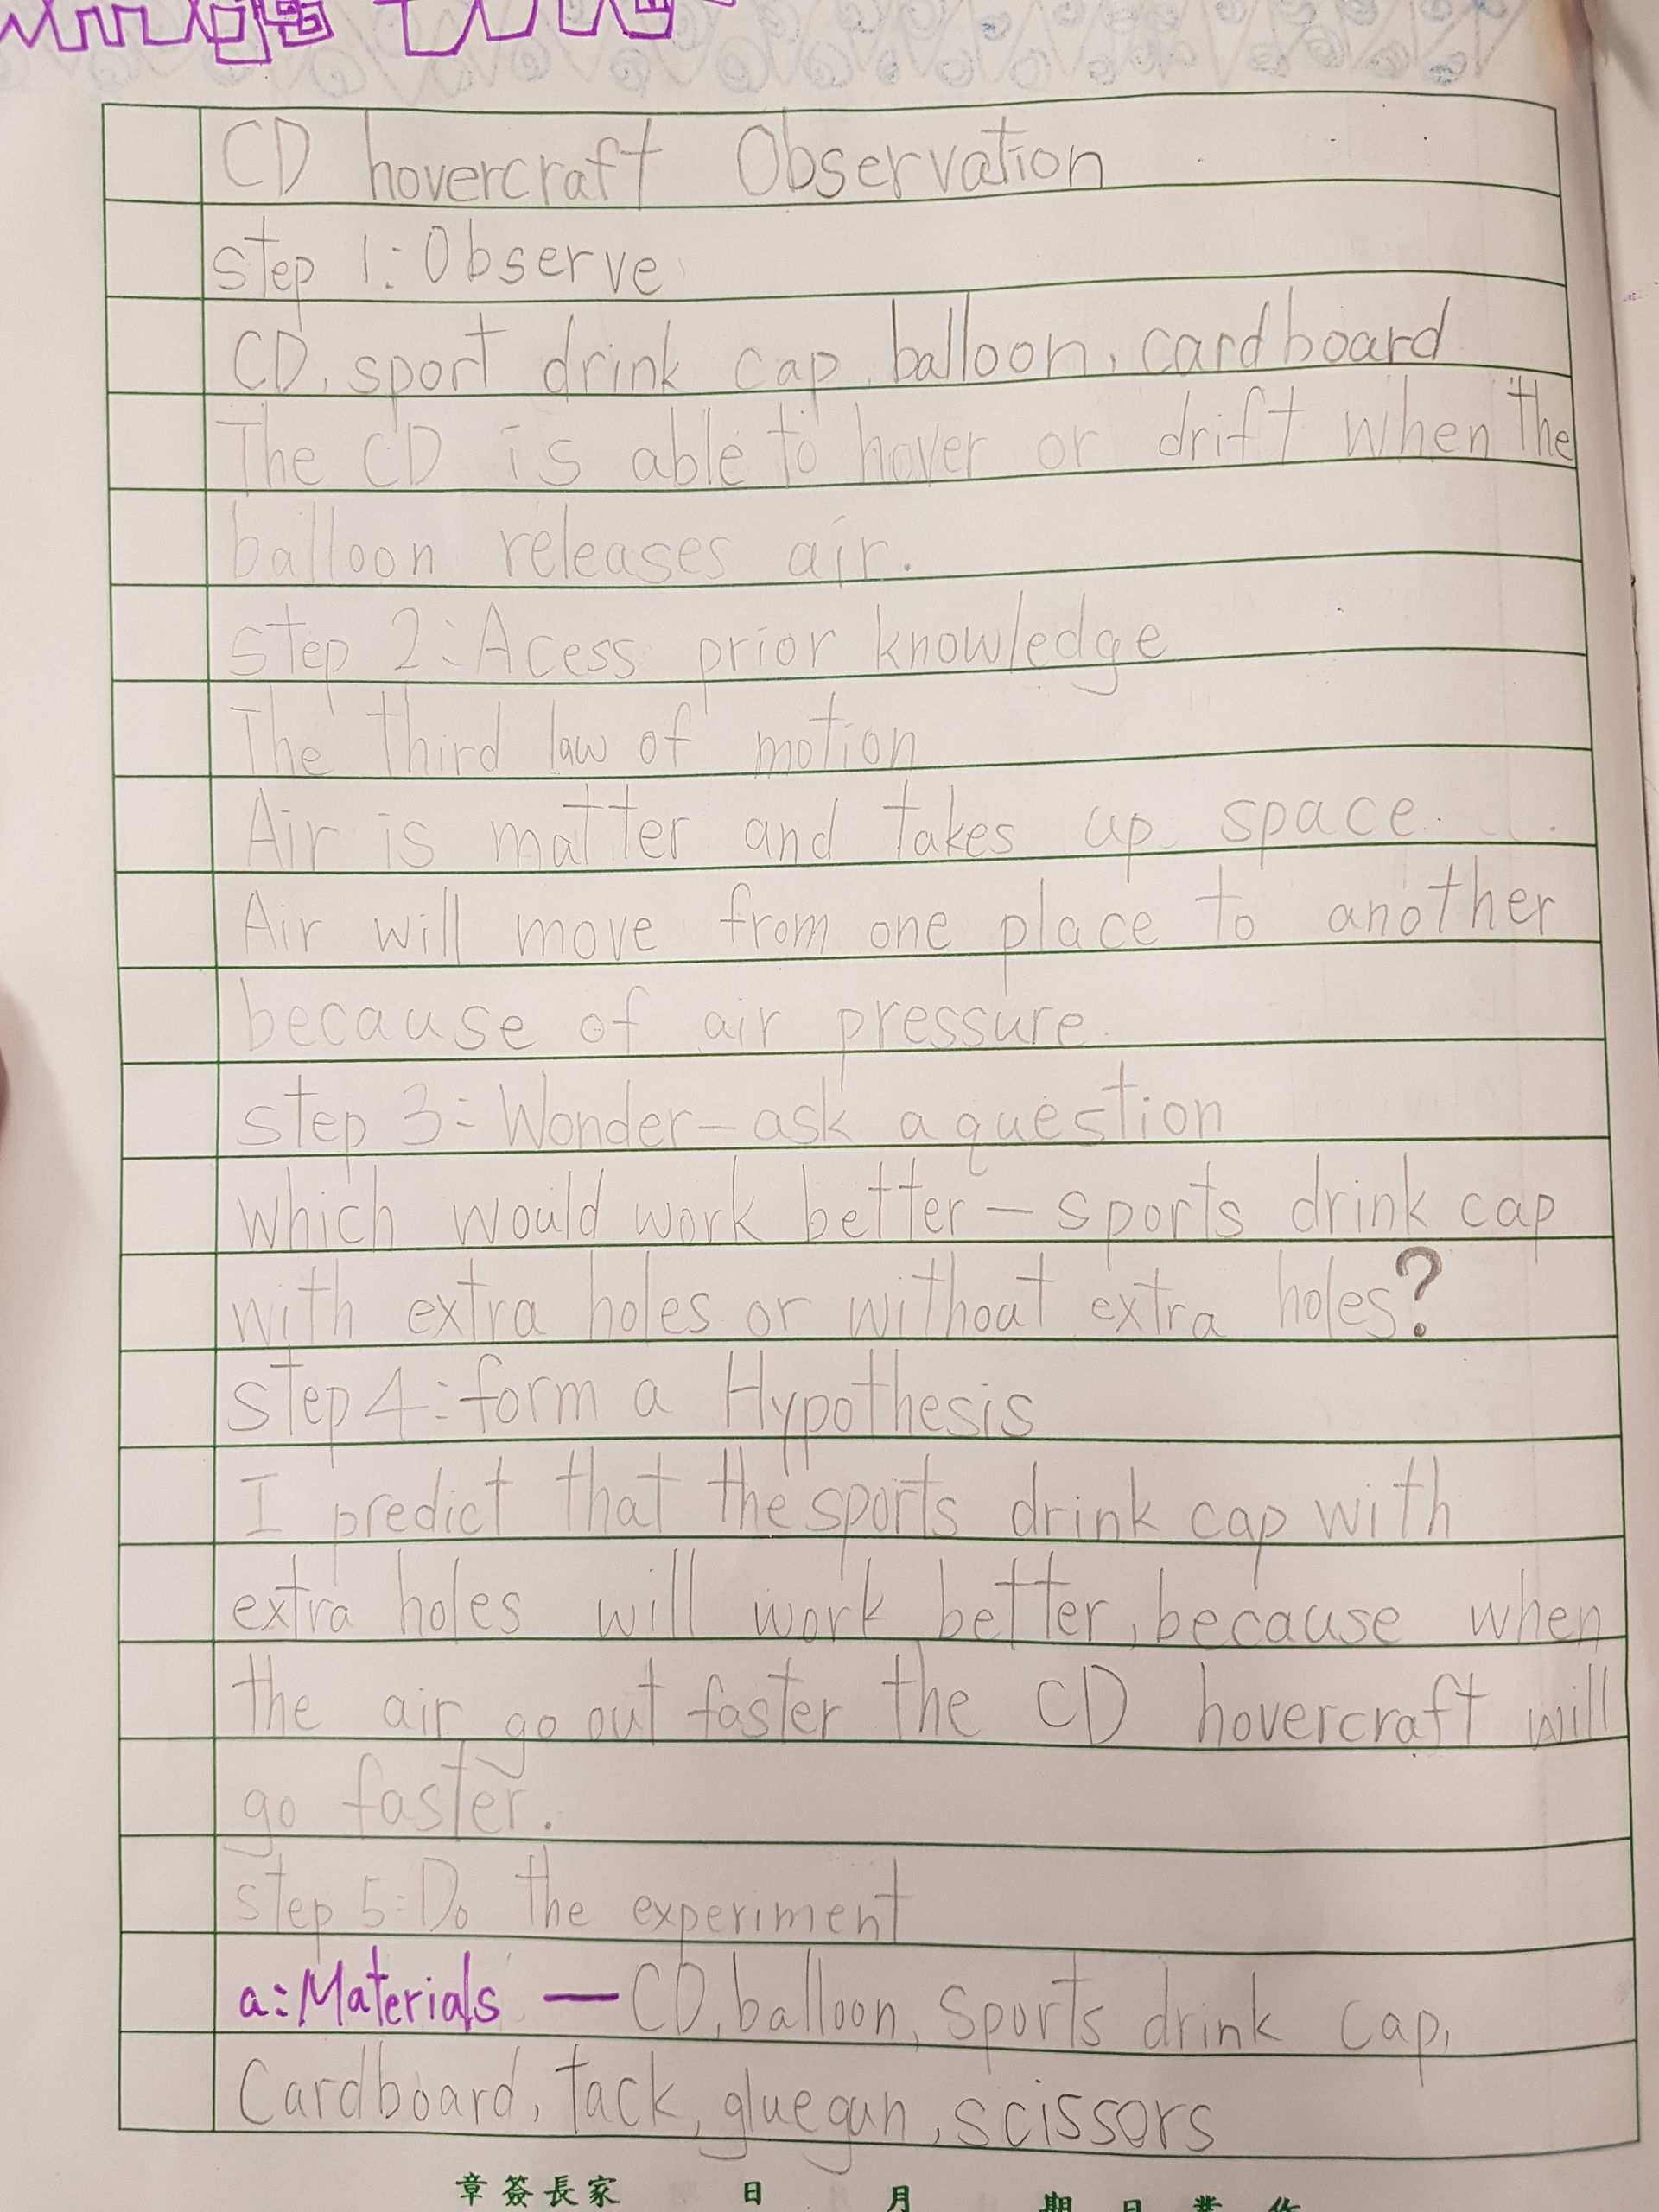 CD hovercraft Observation
step 1: Observe
CD, sport drink cap, balloon, cardboard
The CD is able to hover or drift when the
balloon releases air.
step 2: Acess prior knowledge
The third law of motion
Air is matter and takes up space.
Air will move from one place to another
because of air pressure.
step 3: Wonder - ask a question
which would work better - sports drink cap
with extra holes or without extra holes?
step 4: form a Hypothesis
I predict that the sports drink cap with
extra holes will work better, because when
the air go out faster the CD hovercraft will
go faster.
step 5: Do the experiment
a: Materials — CD, balloon, Sports drink cap,
Cardboard, tack, glue gun, scissors
章簽長家 日 月 期日業作